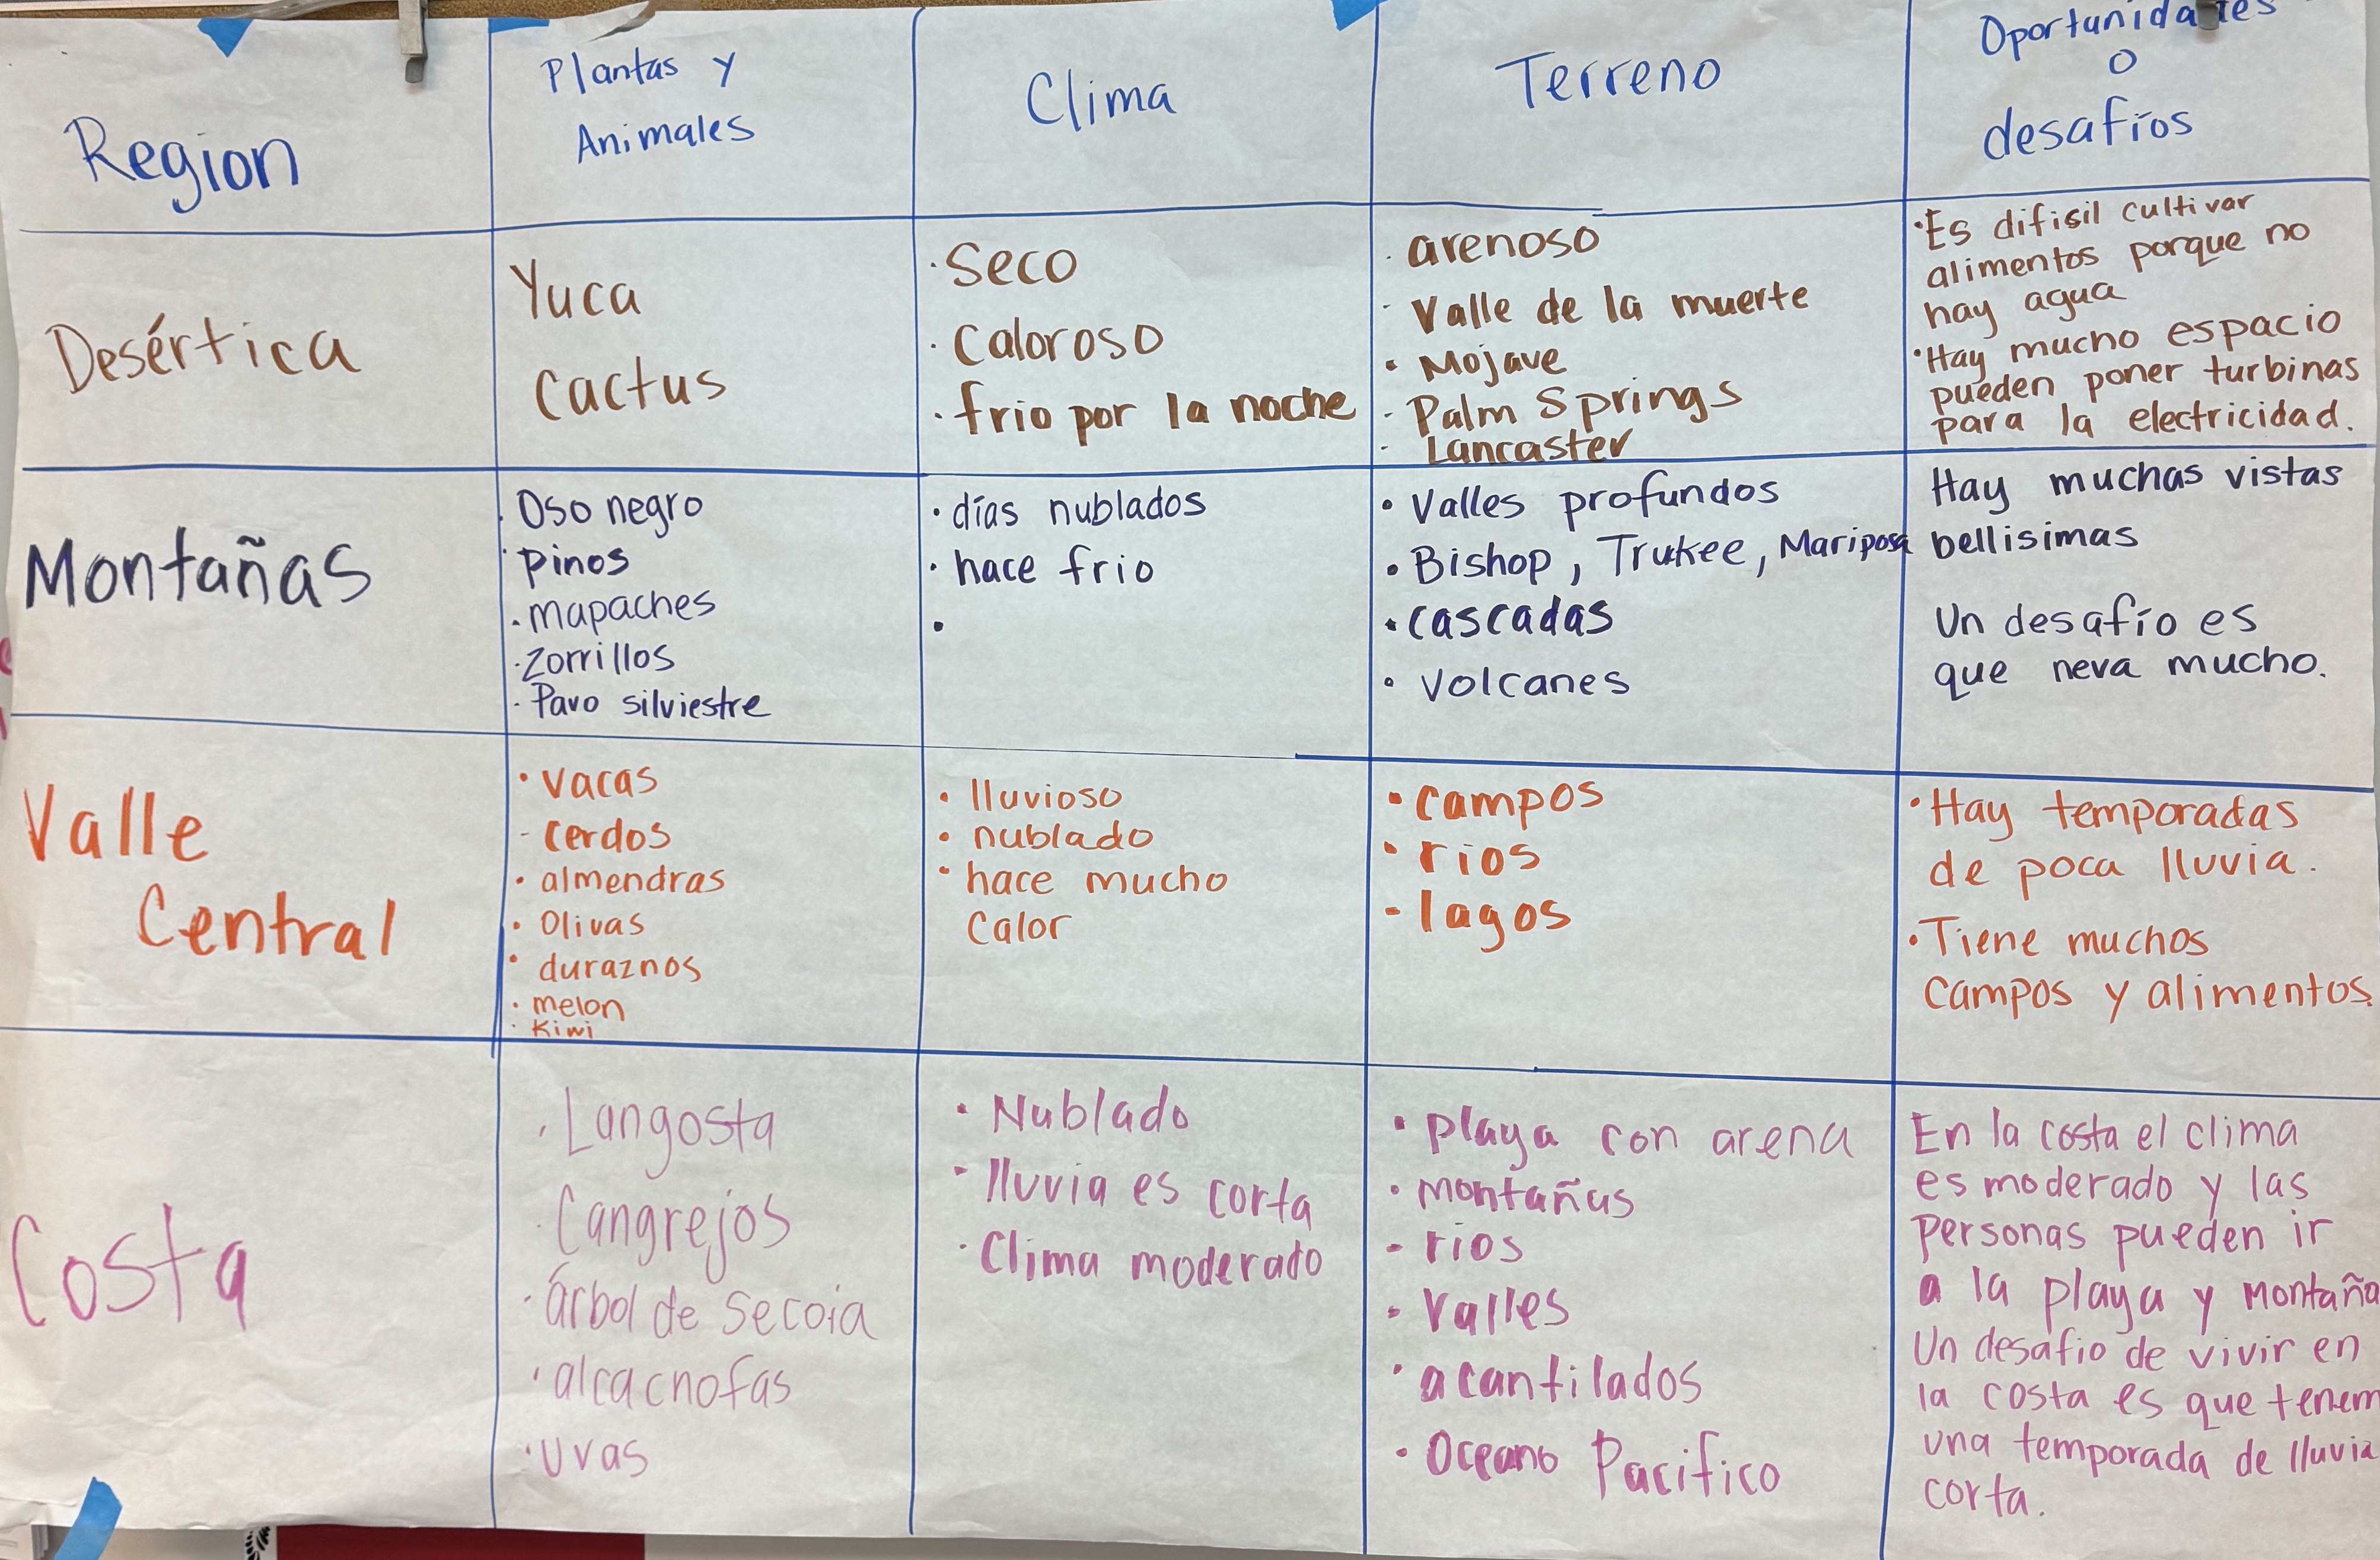 Region
Plantas y
Animales
Clima
Terreno
Oportunidades
o
desafíos
Desértica
Yuca
Cactus
· Seco
· Caloroso
· frio por la noche
· arenoso
- Valle de la muerte
• Mojave
- Palm Springs
- Lancaster
• Es difisil cultivar
alimentos porque no
hay agua
• Hay mucho espacio
pueden poner turbinas
para la electricidad.
Montañas
· Oso negro
· pinos
· mapaches
· Zorrillos
· Pavo silviestre
• días nublados
• hace frio
•
• Valles profundos
• Bishop, Trukee, Mariposa
• cascadas
• Volcanes
Hay muchas vistas
bellisimas
Un desafío es
que neva mucho.
Valle
Central
• vacas
- cerdos
• almendras
• Olivas
• duraznos
• melon
• Kiwi
• lluvioso
• nublado
• hace mucho
Calor
• campos
• rios
- lagos
• Hay temporadas
de poca lluvia.
• Tiene muchos
campos y alimentos.
Costa
· Langosta
· Cangrejos
· árbol de Secoia
· alcacnofas
· uvas
• Nublado
• lluvia es corta
· Clima moderado
• playa con arena
• montañas
- rios
- Valles
• acantilados
• Oceano Pacifico
En la costa el clima
es moderado y las
personas pueden ir
a la playa y montaña
Un desafio de vivir en
la costa es que tenem
una temporada de lluvia
corta.